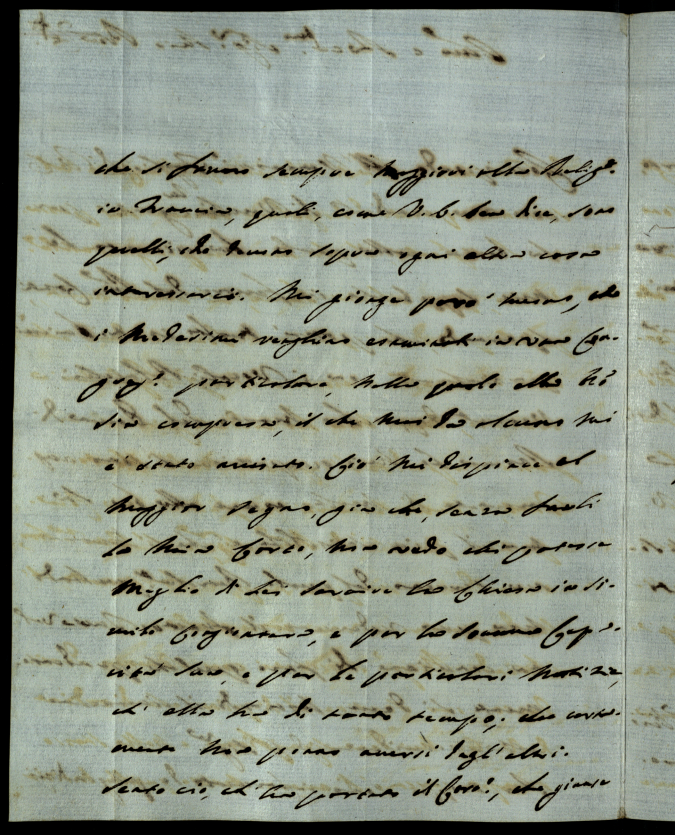 che si fanno sempre maggiori alla Relig.e
in Francia, quali, come V. E. ben dice, sono
quelli, che devono sopra ogni altra cosa
interessarci. Mi giunge però nuovo, che
i medesimi venghino esaminati in una Con-
greg.e particolare, nella quale ella nõ
sia compresa, il che mai da alcuno mi
è stato avvisato. Ciò mi dispiace al
maggior segno, già che, senza farli
la mia Corte, non vedo chi potesse
meglio di Lei servire la Chiesa in si-
mile congiuntura, e per la somma Capa-
cità sua, e per le particolari Notizie,
ch' ella ha di tanto tempo; che certa-
mente non ponno aversi dagl'altri.
Sento ciò, ch' ha portato il Corr.e, che giunse